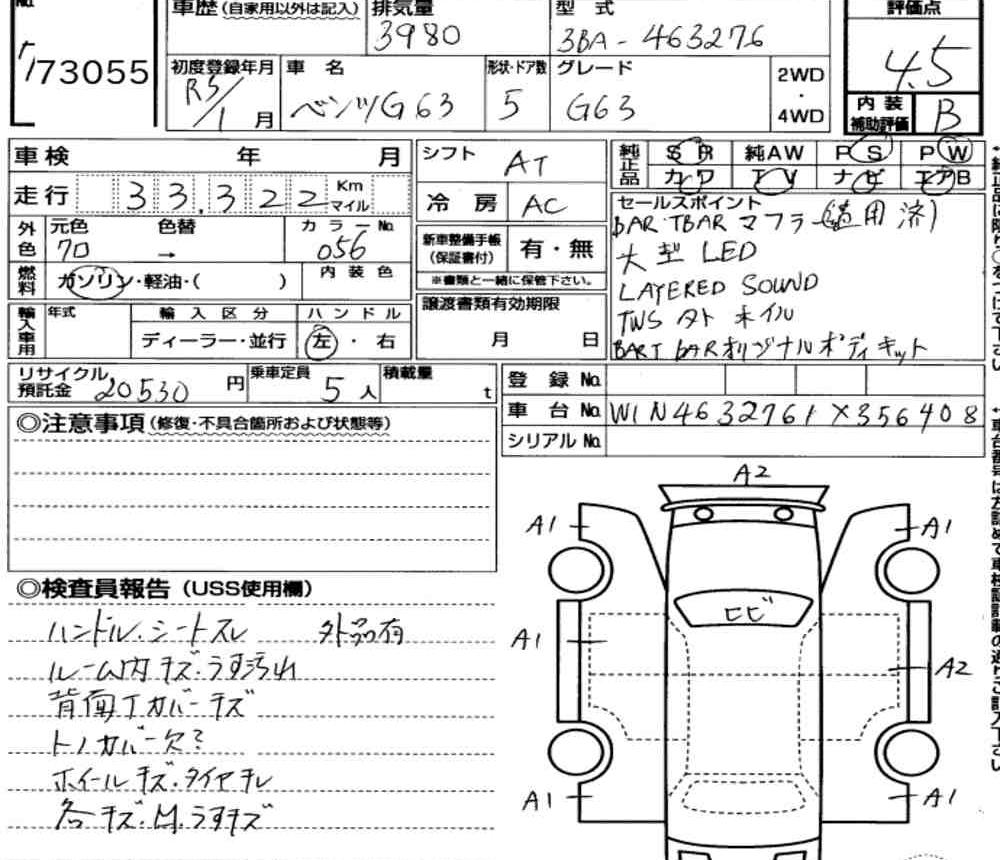 No.
73055
車歴(自家用以外は記入)
排気量
3980
型式
3BA-463276
評価点
4.5
初度登録年月
R5/1月
車名
ベンツG63
形状・ドア数
5
グレード
G63
2WD
・
4WD
内装
補助評価
B
車検 年 月
走行 33,322 Km マイル
シフト AT
冷房 AC
純正品
SR 純AW PS PW
カワ TV ナビ エアB
外色
元色 色替 カラーNo.
70 → 056
燃料
ガソリン・軽油・( )
内装色
新車整備手帳
(保証書付)
有・無
※書類と一緒に保管下さい。
譲渡書類有効期限
月 日
セールスポイント
BAR・TBAR マフラー(適用済)
大型 LED
LAYERED SOUND
TWS 外ホイル
BART BARオリジナルボディキット
輸入車用
年式
輸入区分
ハンドル
ディーラー・並行
左・右
リサイクル
預託金 20530円
乗車定員 5人
積載量 t
登録No.
車台No. W1N4632761X356408
シリアルNo.
◎注意事項(修復・不具合箇所および状態等)
◎検査員報告(USS使用欄)
ハンドル.シートスレ 外品有
ルーム内キズ.うす汚れ
背面Tカバーキズ
トノカバー欠?
ホイールキズ.タイヤチレ
各キズ.M.うすキズ
A2
A1
A1
ヒビ
A1
A2
A1
A1